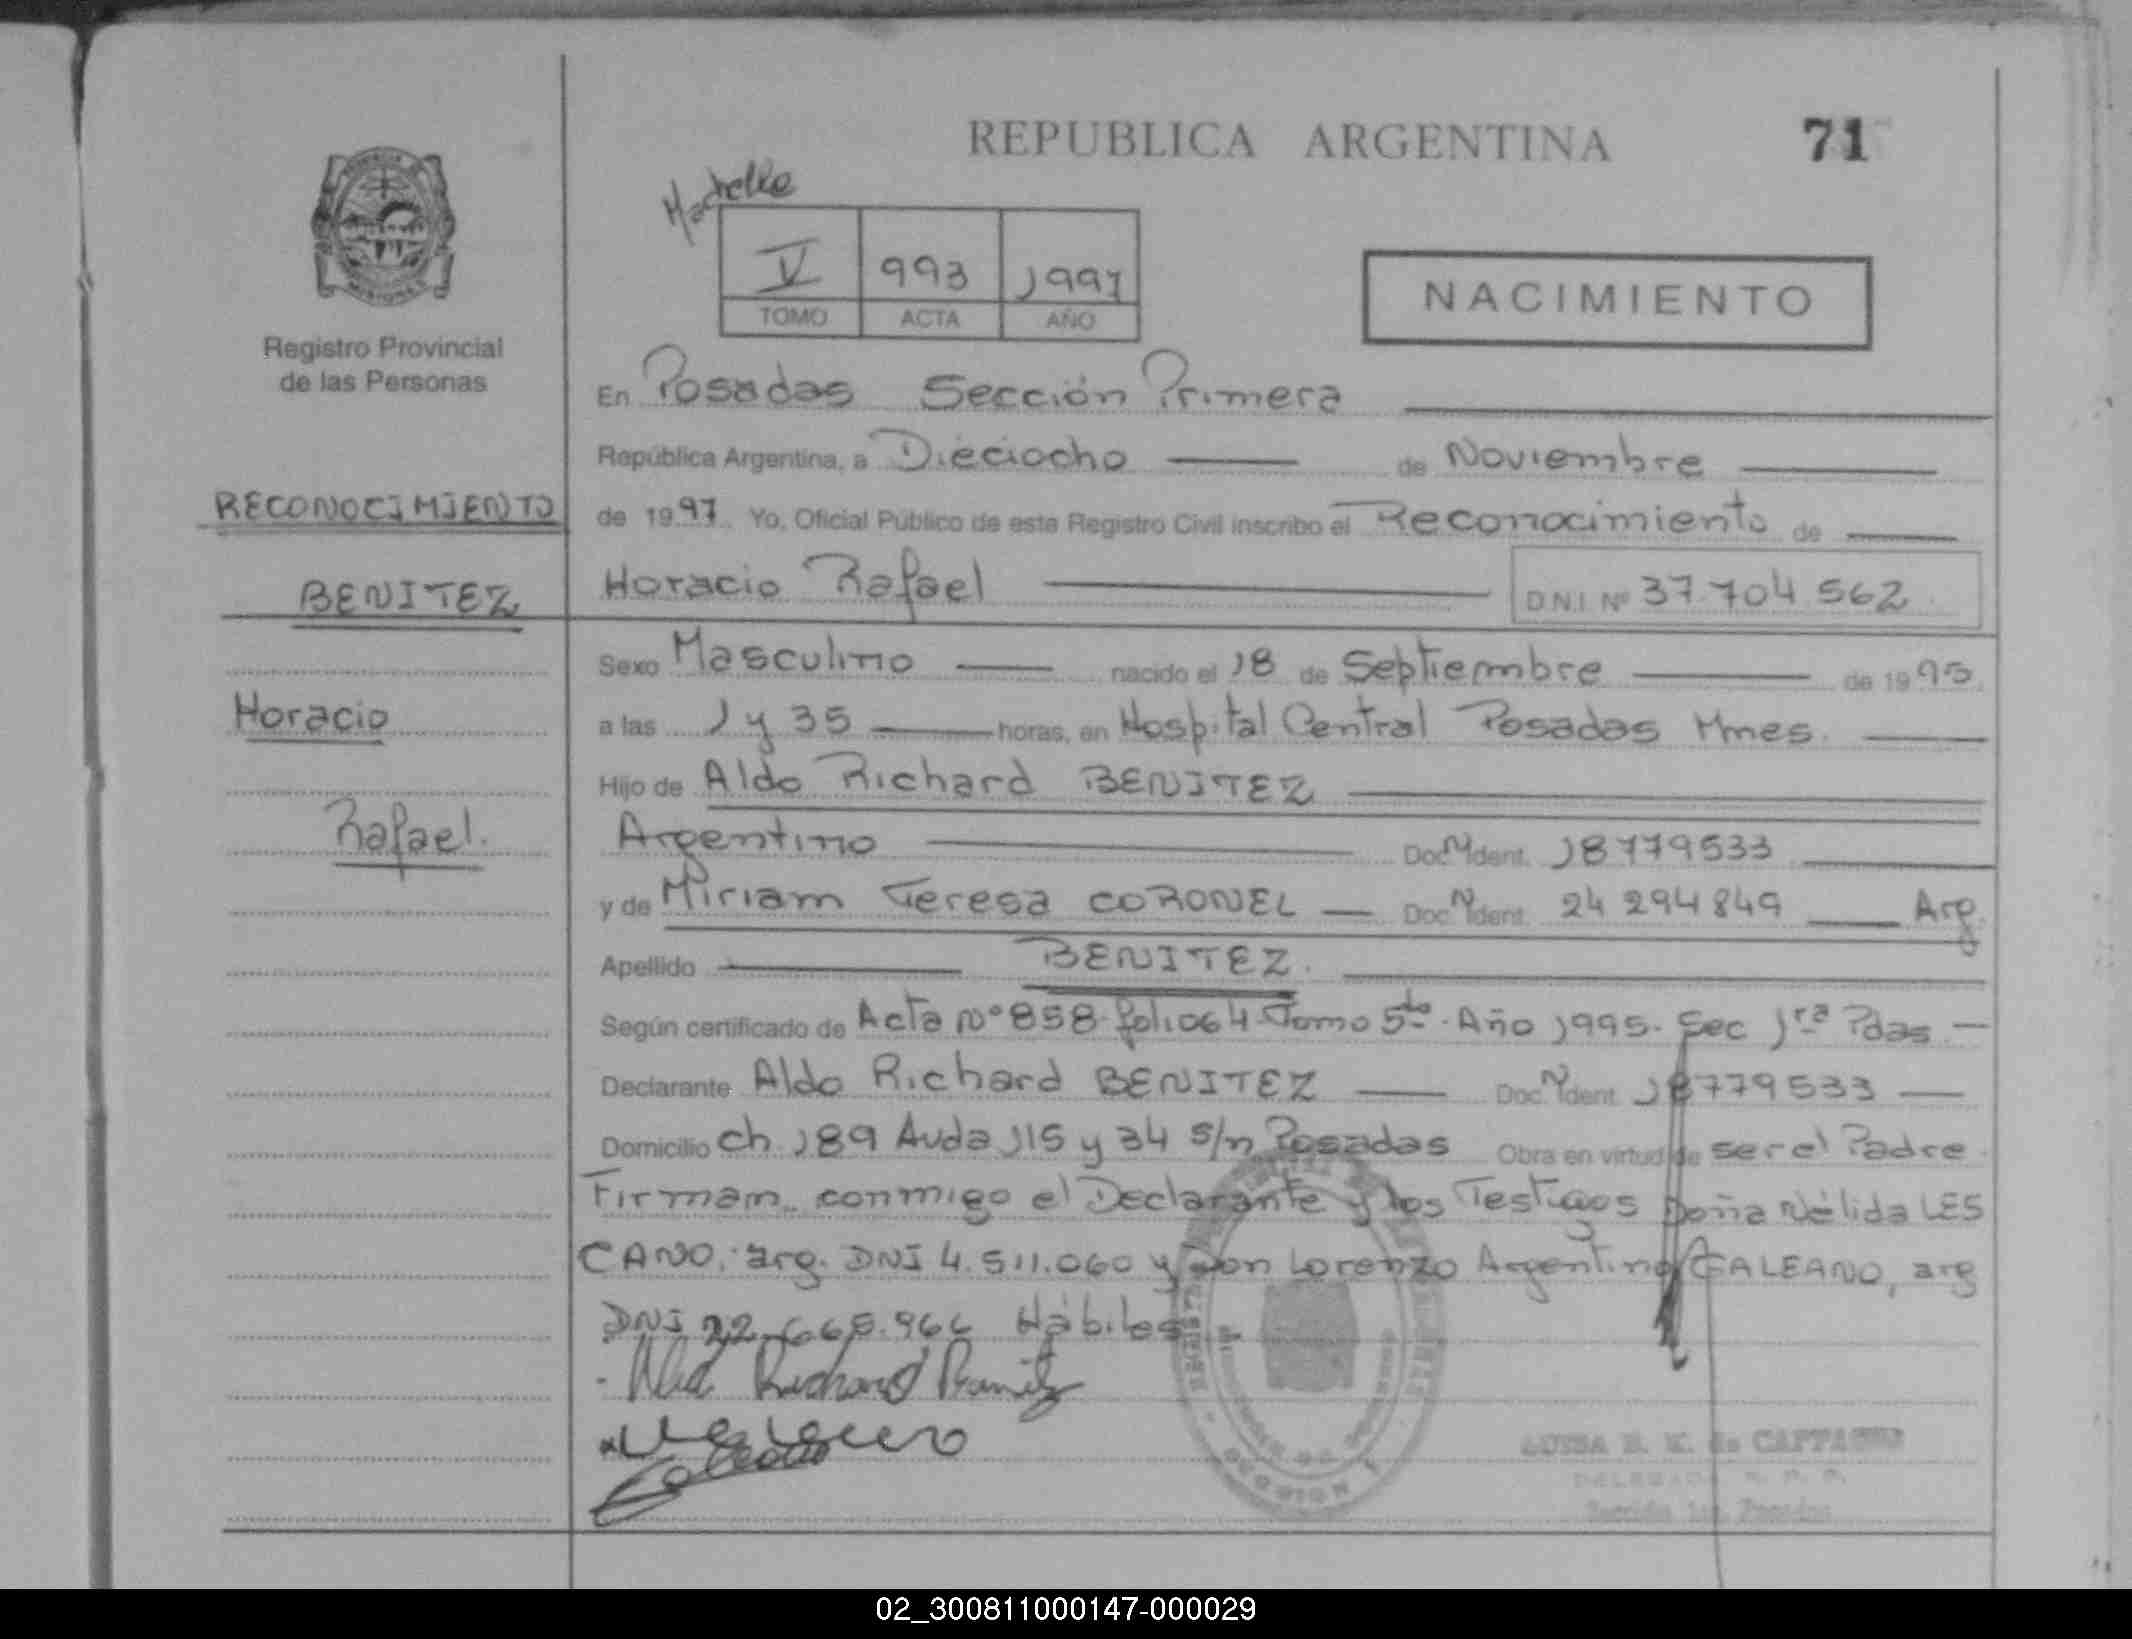 REPUBLICA ARGENTINA
71
V 993 1997
TOMO ACTA AÑO
NACIMIENTO
MISIONES
Registro Provincial
de las Personas
RECONOCIMIENTO
BENITEZ
Horacio
Rafael.
En Posadas Sección Primera
República Argentina, a Dieciocho de Noviembre
de 1997 Yo, Oficial Público de este Registro Civil inscribo el Reconocimiento de
Horacio Rafael DNI Nº 37 704 562
Sexo Masculino nacido el 18 de Septiembre de 1995
a las 1 y 35 horas, en Hospital Central Posadas Mnes.
Hijo de Aldo Richard BENITEZ
Argentino Doc. Ident. 18779533
y de Miriam Teresa CORONEL Doc. Ident. 24 294 849 Arg.
Apellido BENITEZ.
Según certificado de Acta Nº 858 folio 64 Tomo 5to. Año 1995. Sec 1ra Pdas
Declarante Aldo Richard BENITEZ Doc. Ident. 18779533
Domicilio ch. 189 Avda 115 y 34 s/n Posadas Obra en virtud de ser el Padre
Firman conmigo el Declarante y los Testigos Doña Nélida LES
CANO, arg. DNI 4.511.060 y Don Lorenzo Argentino GALEANO, arg
DNI Hábiles
LUISA
02_300811000147-000029